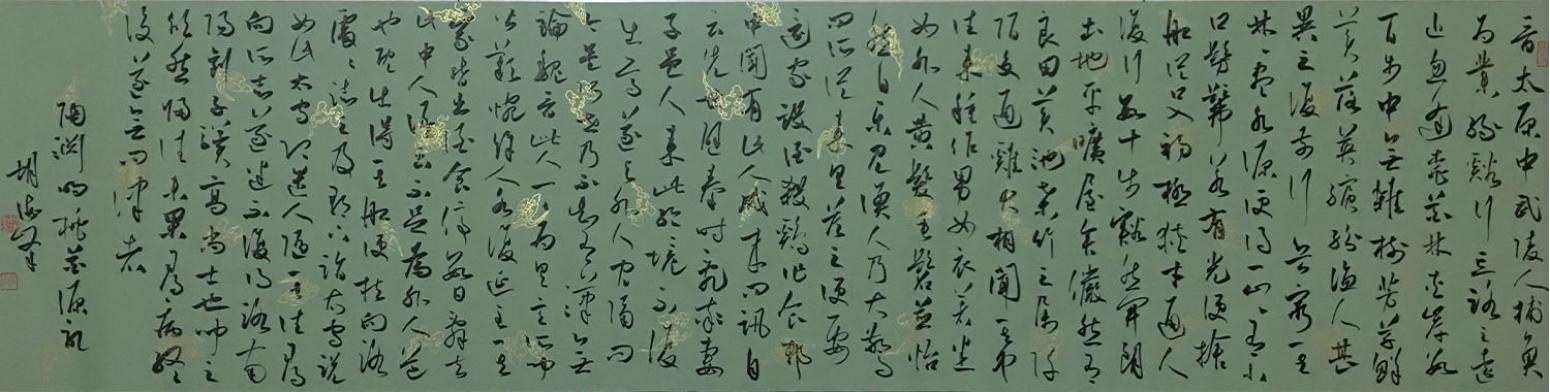 晋太原中武陵人捕魚
為業緣谿行忘路之遠
近忽逢桃花林夾岸數
百步中無雜樹芳草鮮
美落英繽紛漁人甚
異之復前行欲窮其
林林盡水源便得一山山有小
口髣髴若有光便捨
船從口入初極狹才通人
復行數十步豁然開朗
土地平曠屋舍儼然有
良田美池桑竹之屬阡
陌交通雞犬相聞其中
往來種作男女衣著悉
如外人黄髮垂髫並怡
然自樂見漁人乃大驚
問所從來具答之便要
還家設酒殺鷄作食邨
中聞有此人咸來問訊自
云先世避秦時亂率妻
子邑人來此絕境不復
出焉遂與外人間隔問
今是何世乃不知有漢無
論魏晉此人一一為具言所聞
皆歎惋餘人各復延至其
家皆出酒食停數日辭去
此中人語云不足為外人道
也既出得其船便扶向路
處處誌之及郡下詣太守說
如此太守即遣人隨其往尋
向所誌遂迷不復得路南
陽劉子驥高尚士也聞之
欣然規往未果尋病終
後遂無問津者
陶淵明桃花源記
胡海